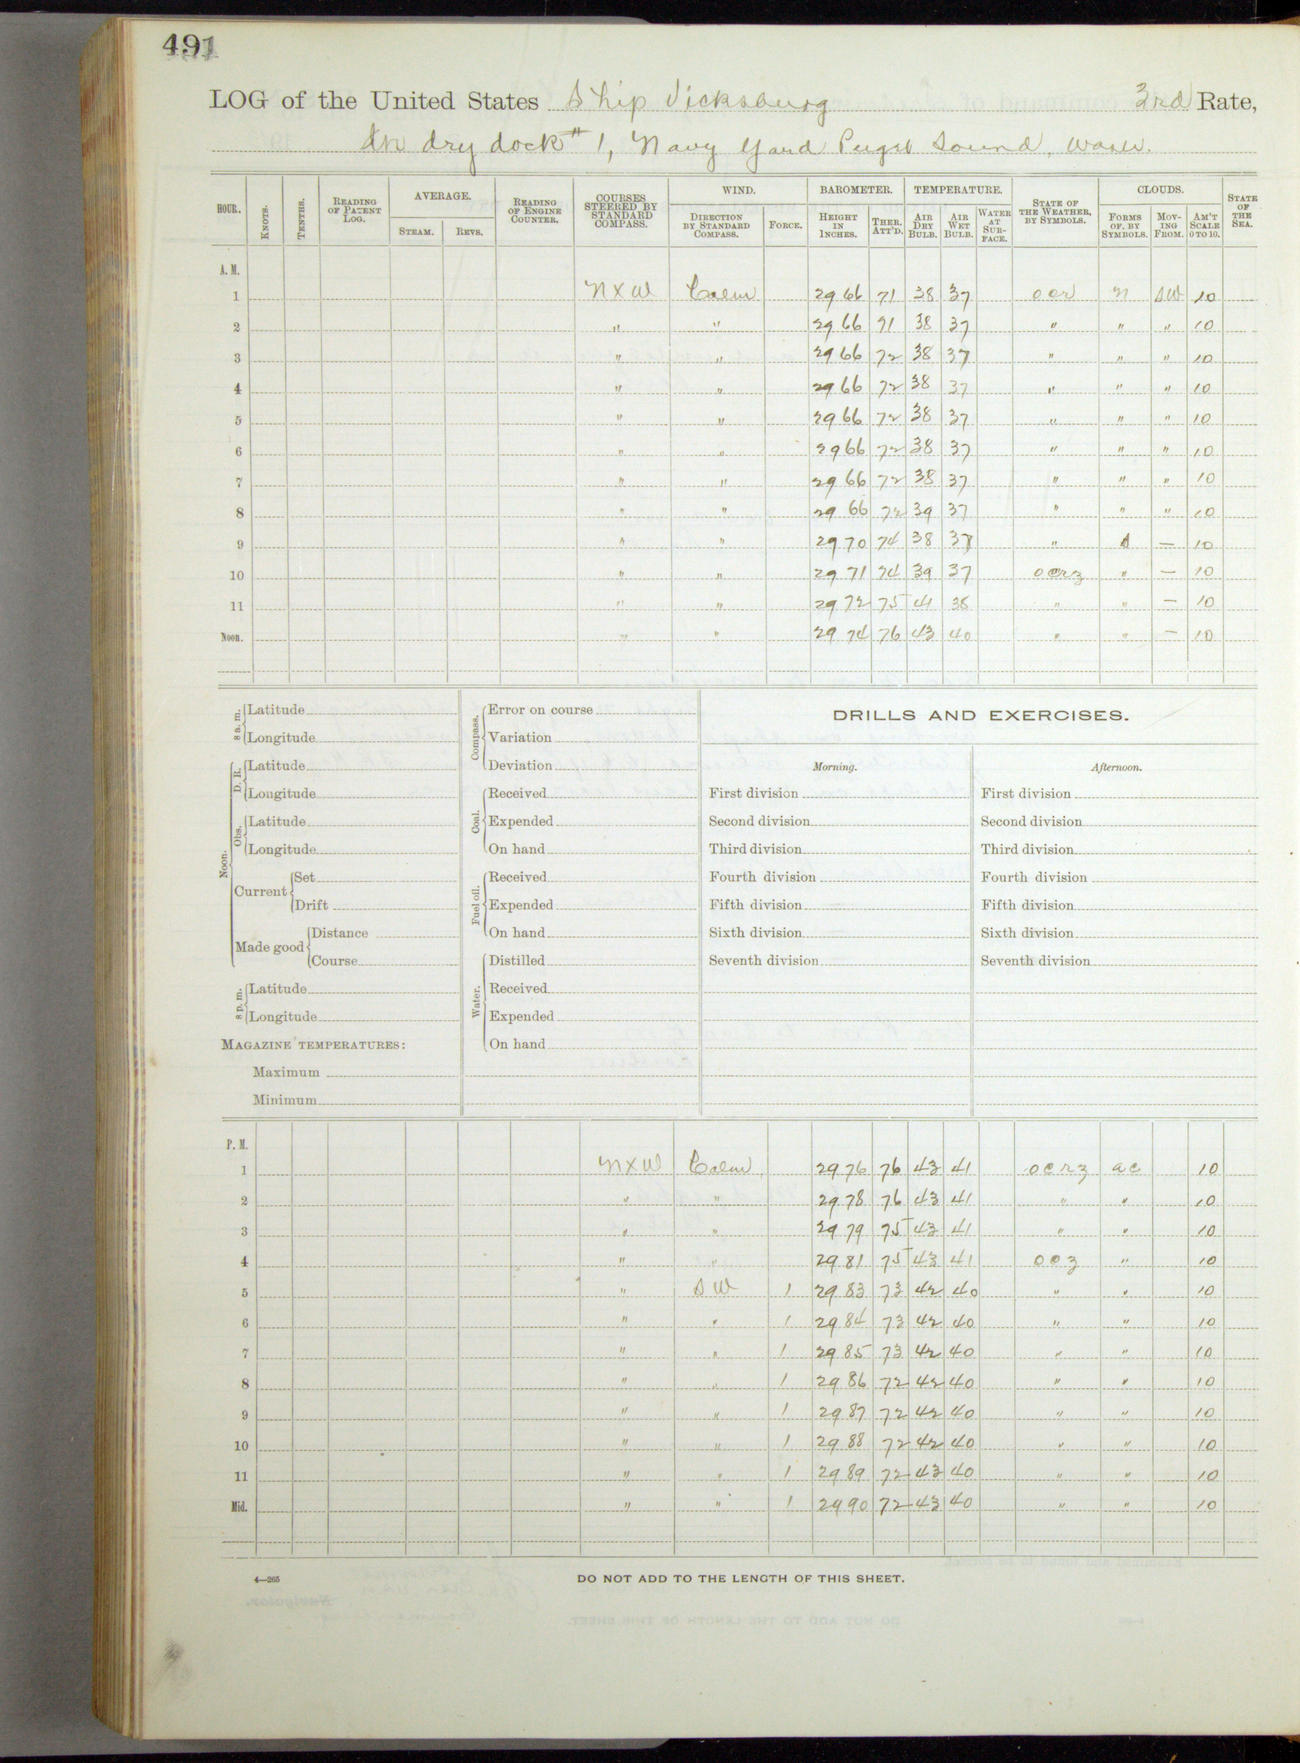 491
LOG of the United States Ship Vicksburg 3rd Rate,
In dry dock #1, Navy Yard Puget Sound, Wash.
HOUR. KNOTS. TENTHS. READING OF PATENT LOG. AVERAGE. STEAM. REVS. READING OF ENGINE COUNTER. COURSES STEERED BY STANDARD COMPASS. WIND. DIRECTION BY STANDARD COMPASS. FORCE. BAROMETER. HEIGHT IN INCHES. THER. ATT'D. TEMPERATURE. AIR DRY BULB. AIR WET BULB. WATER AT SURFACE. STATE OF THE WEATHER, BY SYMBOLS. CLOUDS. FORMS OF, BY SYMBOLS. MOVING FROM. AM'T SCALE 0 TO 10. STATE OF THE SEA.
A. M.
1 NXW Calm 29 66 71 38 37 ocr N SW 10
2 " " 29 66 71 38 37 " " " 10
3 " " 29 66 72 38 37 " " " 10
4 " " 29 66 72 38 37 " " " 10
5 " " 29 66 72 38 37 " " " 10
6 " " 29 66 72 38 37 " " " 10
7 " " 29 66 72 38 37 " " " 10
8 " " 29 66 72 39 37 " " " 10
9 " " 29 70 74 38 37 " S — 10
10 " " 29 71 74 39 37 ocrz " — 10
11 " " 29 72 75 41 38 " " — 10
Noon. " " 29 74 76 43 40 " " — 10
8 a. m. Latitude
Longitude
Noon. D. R. Latitude
Longitude
Obs. Latitude
Longitude
Current Set
Drift
Made good Distance
Course
8 p. m. Latitude
Longitude
MAGAZINE TEMPERATURES:
Maximum
Minimum
Compass. Error on course
Variation
Deviation
Coal. Received
Expended
On hand
Fuel oil. Received
Expended
On hand
Water. Distilled
Received
Expended
On hand
DRILLS AND EXERCISES.
Morning. Afternoon.
First division First division
Second division Second division
Third division Third division
Fourth division Fourth division
Fifth division Fifth division
Sixth division Sixth division
Seventh division Seventh division
P. M.
1 NXW Calm 29 76 76 43 41 ocrz ac 10
2 " " 29 78 76 43 41 " " 10
3 " " 29 79 75 43 41 " " 10
4 " " 29 81 75 43 41 ocz " 10
5 " SW 1 29 83 73 42 40 " " 10
6 " " 1 29 84 73 42 40 " " 10
7 " " 1 29 85 73 42 40 " " 10
8 " " 1 29 86 72 42 40 " " 10
9 " " 1 29 87 72 42 40 " " 10
10 " " 1 29 88 72 42 40 " " 10
11 " " 1 29 89 72 43 40 " " 10
Mid. " " 1 29 90 72 43 40 " " 10
4—265 DO NOT ADD TO THE LENGTH OF THIS SHEET.